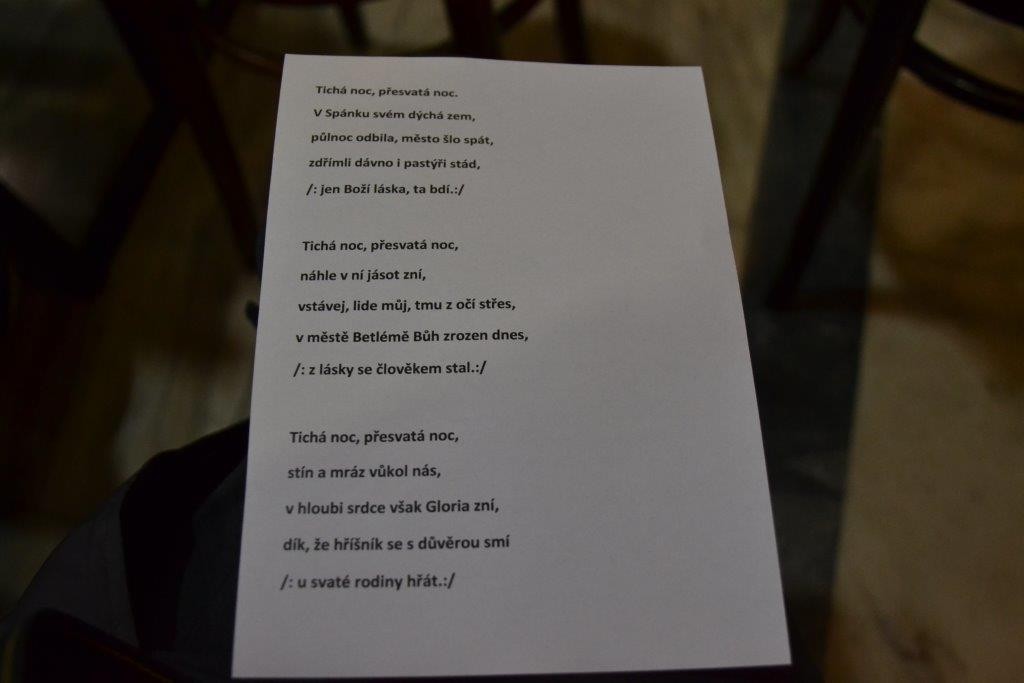 Tichá noc, přesvatá noc.
V Spánku svém dýchá zem,
půlnoc odbila, město šlo spát,
zdřímli dávno i pastýři stád,
/: jen Boží láska, ta bdí.:/
Tichá noc, přesvatá noc,
náhle v ní jásot zní,
vstávej, lide můj, tmu z očí střes,
v městě Betlémě Bůh zrozen dnes,
/: z lásky se člověkem stal.:/
Tichá noc, přesvatá noc,
stín a mráz vůkol nás,
v hloubi srdce však Gloria zní,
dík, že hříšník se s důvěrou smí
/: u svaté rodiny hřát.:/